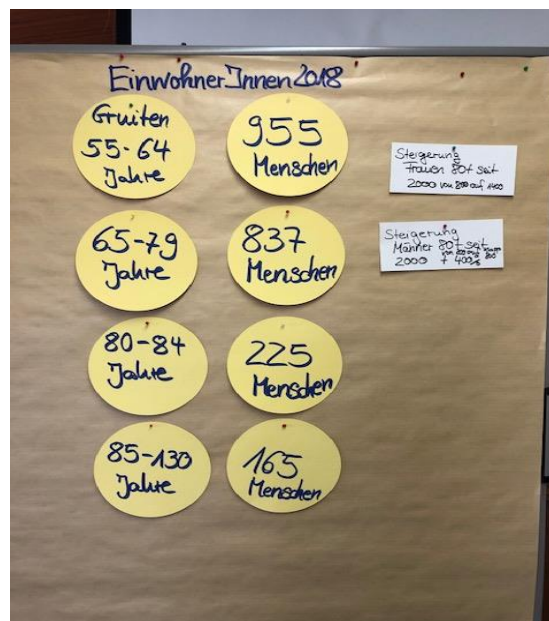 EinwohnerInnen 2018
Gruiten
55-64
Jahre
955
Menschen
65-79
Jahre
837
Menschen
80-84
Jahre
225
Menschen
85-130
Jahre
165
Menschen
Steigerung
Frauen 80+ seit
2000 von 800 auf 1400
Steigerung
Männer 80+ seit
2000 + 400